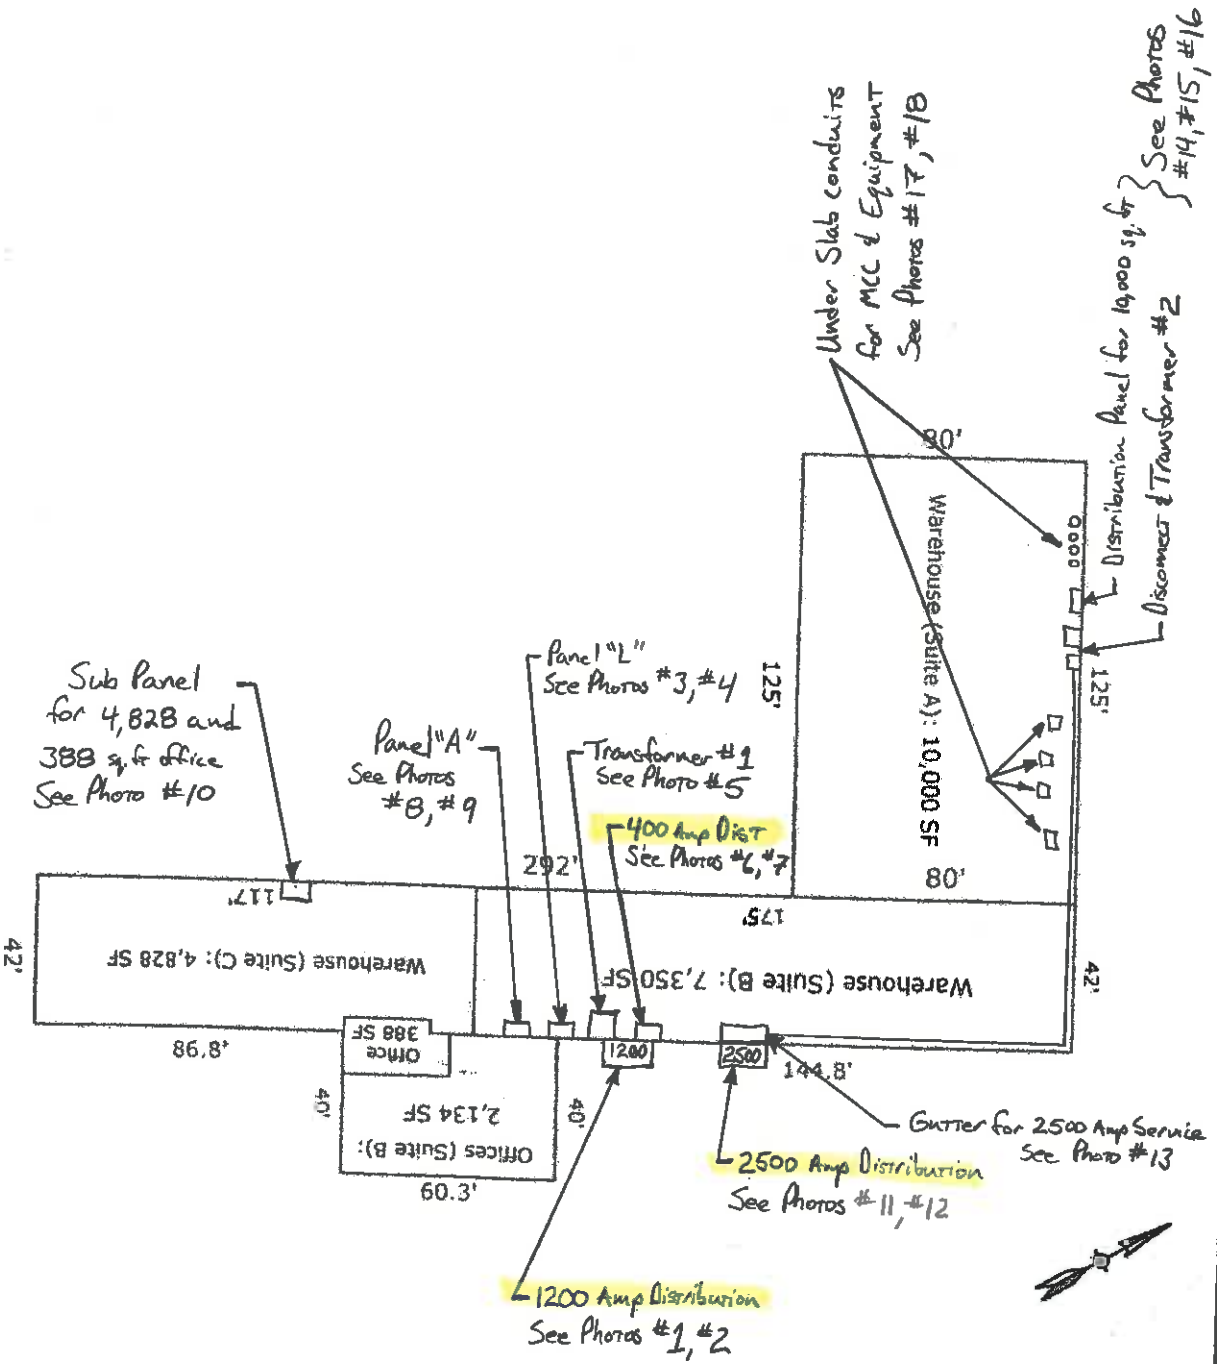 See Photos
#14, #15, #16
Under Slab conduits
for MCC & Equipment
See Photos #17, #18
Distribution Panel for 10,000 sq. ft
Disconnect & Transformer #2
80'
Warehouse (Suite A): 10,000 SF
125'
125'
80'
Panel "L"
See Photos #3, #4
Sub Panel
for 4,828 and
388 sq. ft office
See Photo #10
Panel "A"
See Photos
#8, #9
Transformer #1
See Photo #5
400 Amp Dist
See Photos #6, #7
292'
117'
175'
42'
Warehouse (Suite C): 4,828 SF
Warehouse (Suite B): 7,350 SF
42'
86.8'
Office
388 SF
1200
2500
144.8'
40'
Offices (Suite B):
2,134 SF
40'
60.3'
Gutter for 2500 Amp Service
See Photo #13
2500 Amp Distribution
See Photos #11, #12
1200 Amp Distribution
See Photos #1, #2